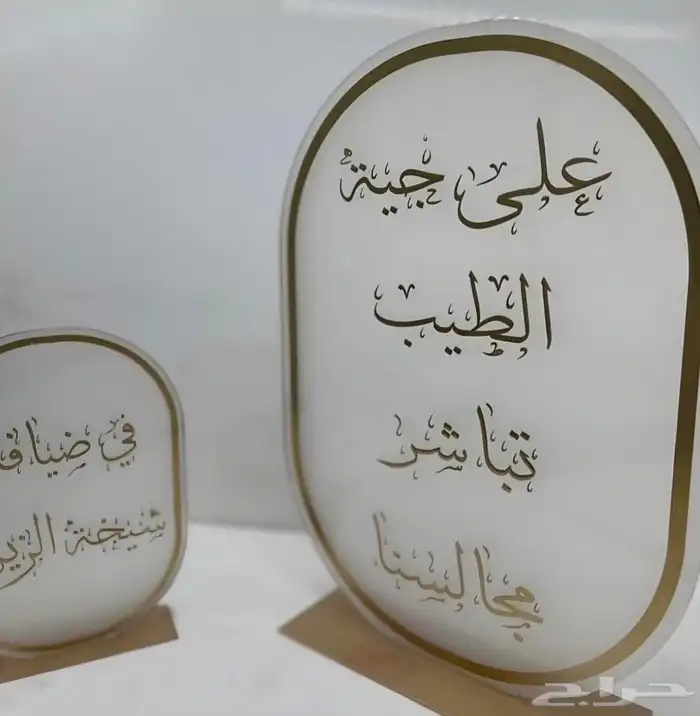 على جية
الطيب
تباشر
مجالسنا
في
شيخة
حراج